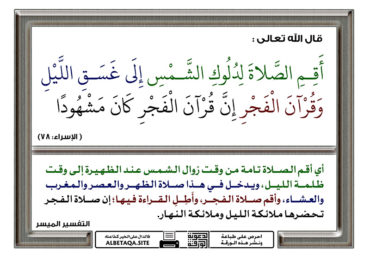 قال الله تعالى :
أَقِمِ الصَّلاةَ لِدُلُوكِ الشَّمْسِ إِلَى غَسَقِ اللَّيْلِ
وَقُرْآنَ الْفَجْرِ إِنَّ قُرْآنَ الْفَجْرِ كَانَ مَشْهُودًا
( الإسراء: ٧٨ )
أي أقم الصلاة تامة من وقت زوال الشمس عند الظهيرة إلى وقت
ظلمة الليل، ويدخل في هذا صلاة الظهر والعصر والمغرب
والعشاء، وأقم صلاة الفجر، وأطِل القراءة فيها؛ إن صلاة الفجر
تحضرها ملائكة الليل وملائكة النهار.
التفسير الميسر
احرص على طباعة
ونشر هذه الورقة
فالدال على الخير كفاعله
ALBETAQA.SITE